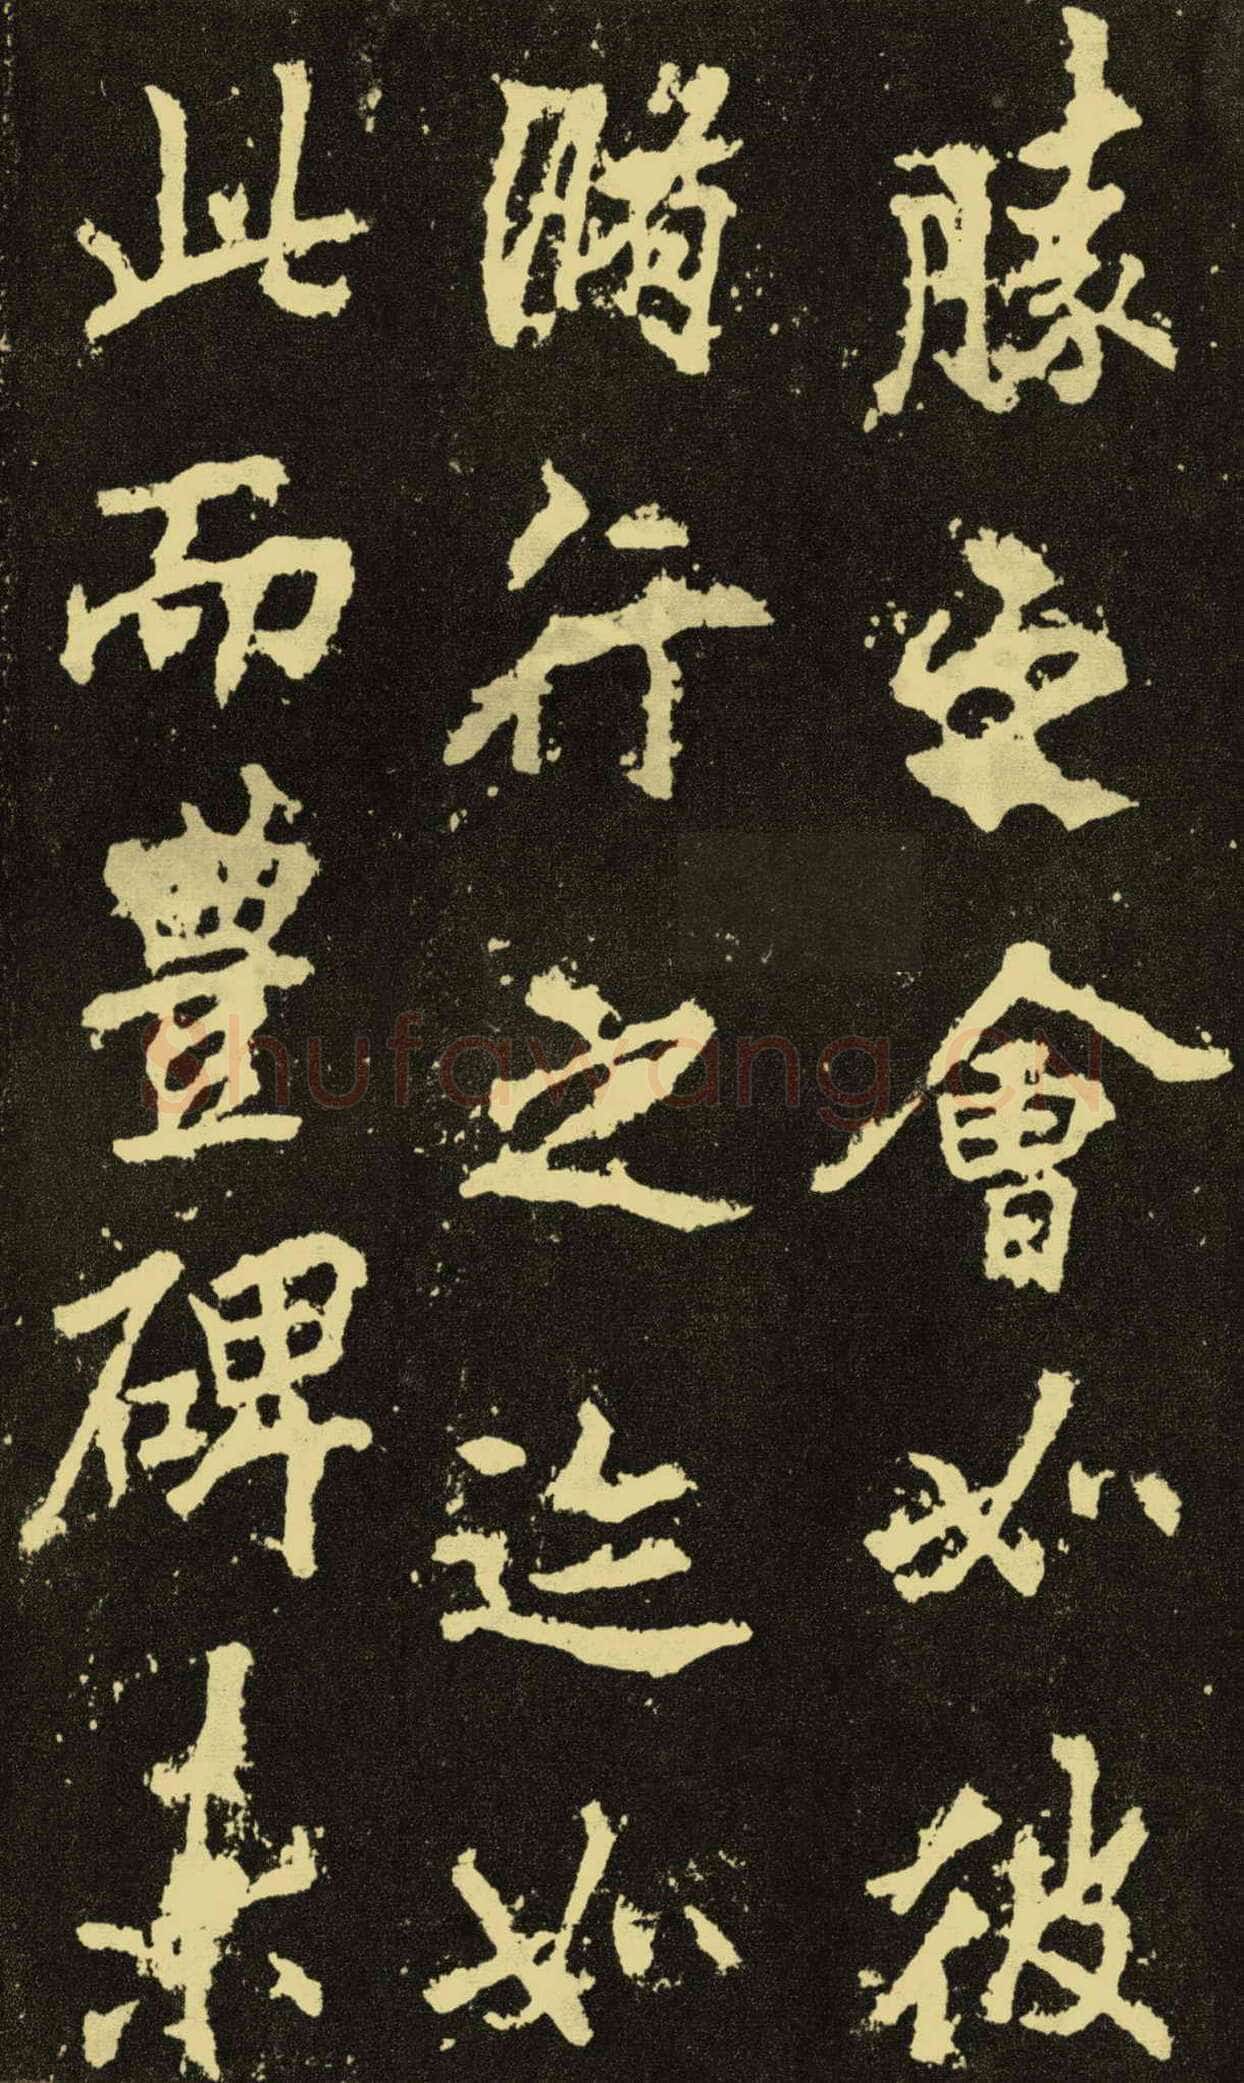 勝之會如彼
脩行之迹如
此而豐碑未
Shufawang.CN